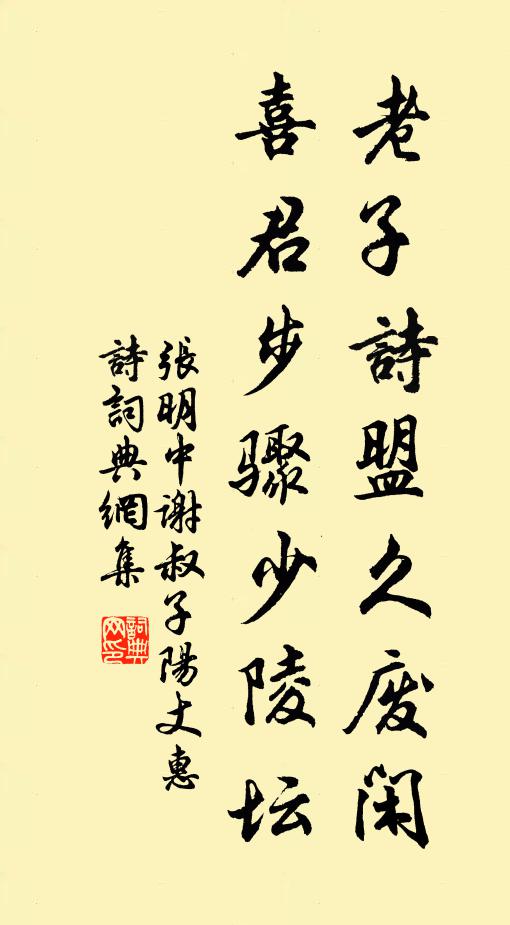 老子詩盟久废闲
喜君步骤少陵坛
張明中谢叔子陽丈惠
詩詞典網集
詞典网印